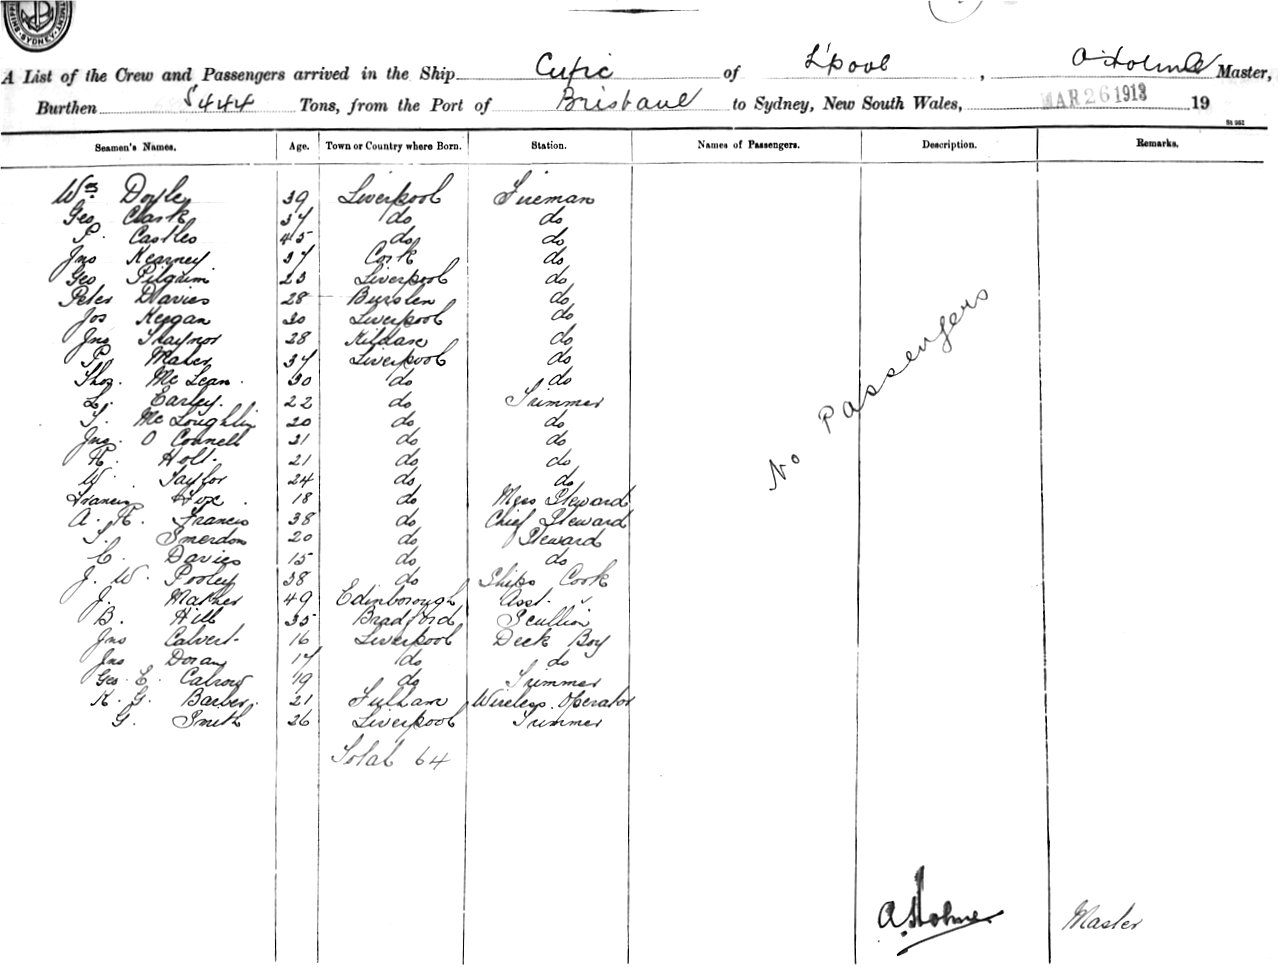 SYDNEY
A List of the Crew and Passengers arrived in the Ship Cufic of L'pool, A. Holme Master,
Burthen 5444 Tons, from the Port of Brisbane to Sydney, New South Wales, MAR 26 1913 19
St 952
Seamen's Names. Age. Town or Country where Born. Station. Names of Passengers. Description. Remarks.
Wm Doyle 39 Liverpool Fireman
Geo Clark 37 do do
P. Castles 45 do do
Jno Kearney 37 Cork do
Geo Pilgrim 23 Liverpool do
Peter Davies 28 Burslen do
Jos Keegan 30 Liverpool do
Jno Traynor 28 Kildare do
P. Maher 37 Liverpool do
Thos. McLean. 30 do do
L. Earley. 22 do Trimmer
T. McLoughlin 20 do do
Jno. O Connell 21 do do
Holt. 21 do do
W. Taylor 24 do do
Francis Fox. 18 do Mess Steward
A. H. Francis 38 do Chief Steward
T. Smerdon 20 do Steward
C. Davies 15 do do
J. W. Pooley 38 do Ships Cook
J. Mather 49 Edinborough Asst. "
B. Hill 35 Bradford Scullion
Jno Calvert 16 Liverpool Deck Boy
Jno Doran 17 do do
Geo. E. Calrow 19 do Trimmer
K. G. Barber. 21 Fulham Wireless Operator
G. Smith 26 Liverpool Trimmer
Total 64
No Passengers
A. Holme Master